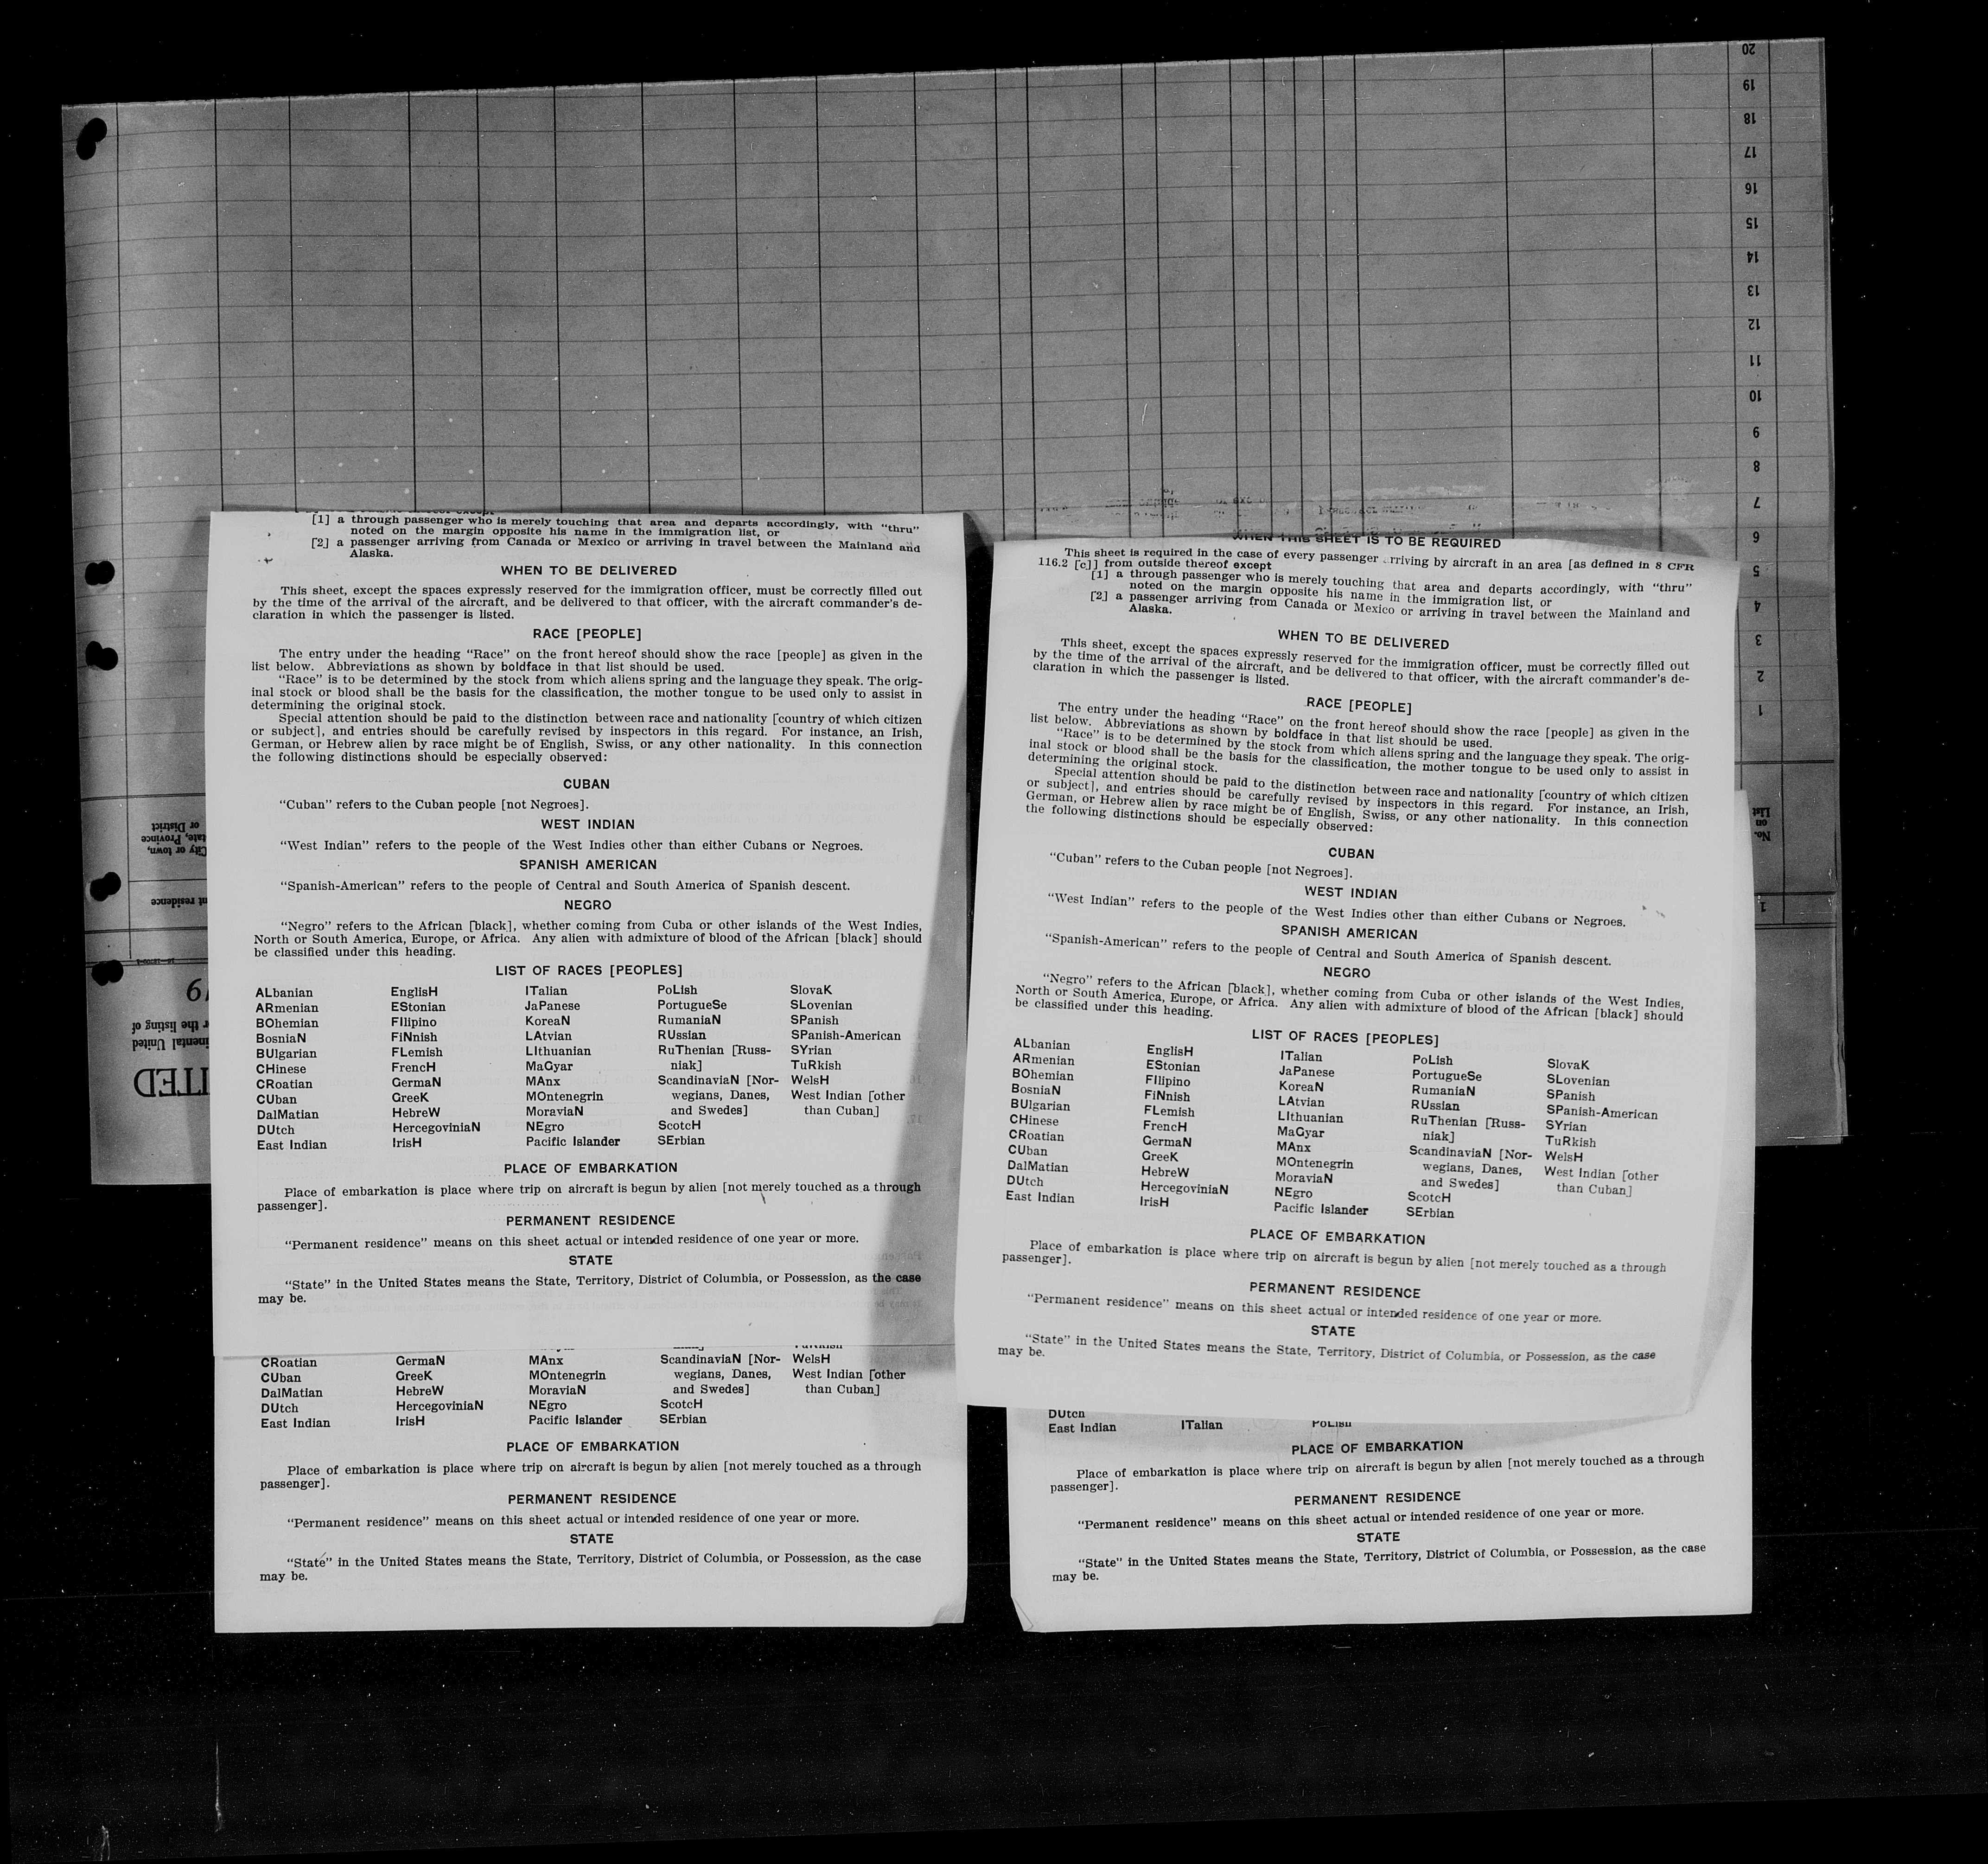 20
19
18
17
16
15
14
13
12
11
10
9
8
7
6
5
4
3
2
1
No.
on
List
1
City or town,
State, Province
or District
residence
19
r the listing of
United
ITED
[1] a through passenger who is merely touching that area and departs accordingly, with “thru”
noted on the margin opposite his name in the immigration list, or
[2] a passenger arriving from Canada or Mexico or arriving in travel between the Mainland and
Alaska.
WHEN TO BE DELIVERED
This sheet, except the spaces expressly reserved for the immigration officer, must be correctly filled out
by the time of the arrival of the aircraft, and be delivered to that officer, with the aircraft commander's de-
claration in which the passenger is listed.
RACE [PEOPLE]
The entry under the heading “Race” on the front hereof should show the race [people] as given in the
list below. Abbreviations as shown by boldface in that list should be used.
“Race” is to be determined by the stock from which aliens spring and the language they speak. The orig-
inal stock or blood shall be the basis for the classification, the mother tongue to be used only to assist in
determining the original stock.
Special attention should be paid to the distinction between race and nationality [country of which citizen
or subject], and entries should be carefully revised by inspectors in this regard. For instance, an Irish,
German, or Hebrew alien by race might be of English, Swiss, or any other nationality. In this connection
the following distinctions should be especially observed:
CUBAN
“Cuban” refers to the Cuban people [not Negroes].
WEST INDIAN
“West Indian” refers to the people of the West Indies other than either Cubans or Negroes.
SPANISH AMERICAN
“Spanish-American” refers to the people of Central and South America of Spanish descent.
NEGRO
“Negro” refers to the African [black], whether coming from Cuba or other islands of the West Indies,
North or South America, Europe, or Africa. Any alien with admixture of blood of the African [black] should
be classified under this heading.
LIST OF RACES [PEOPLES]
ALbanian EnglisH ITalian PoLish SlovaK
ARmenian EStonian JaPanese PortugueSe SLovenian
BOhemian FIlipino KoreaN RumaniaN SPanish
BosniaN FiNnish LAtvian RUssian SPanish-American
BUlgarian FLemish LIthuanian RuThenian [Russ- SYrian
CHinese FrencH MaGyar niak] TuRkish
CRoatian GermaN MAnx ScandinaviaN [Nor- WelsH
CUban GreeK MOntenegrin wegians, Danes, West Indian [other
DalMatian HebreW MoraviaN and Swedes] than Cuban]
DUtch HercegoviniaN NEgro ScotcH
East Indian IrisH Pacific Islander SErbian
PLACE OF EMBARKATION
Place of embarkation is place where trip on aircraft is begun by alien [not merely touched as a through
passenger].
PERMANENT RESIDENCE
“Permanent residence” means on this sheet actual or intended residence of one year or more.
STATE
“State” in the United States means the State, Territory, District of Columbia, or Possession, as the case
may be.
CRoatian GermaN MAnx ScandinaviaN [Nor- WelsH
CUban GreeK MOntenegrin wegians, Danes, West Indian [other
DalMatian HebreW MoraviaN and Swedes] than Cuban]
DUtch HercegoviniaN NEgro ScotcH
East Indian IrisH Pacific Islander SErbian
PLACE OF EMBARKATION
Place of embarkation is place where trip on aircraft is begun by alien [not merely touched as a through
passenger].
PERMANENT RESIDENCE
“Permanent residence” means on this sheet actual or intended residence of one year or more.
STATE
“State” in the United States means the State, Territory, District of Columbia, or Possession, as the case
may be.
WHEN THIS SHEET IS TO BE REQUIRED
This sheet is required in the case of every passenger arriving by aircraft in an area [as defined in 8 CFR
116.2 [c]] from outside thereof except
[1] a through passenger who is merely touching that area and departs accordingly, with “thru”
noted on the margin opposite his name in the immigration list, or
[2] a passenger arriving from Canada or Mexico or arriving in travel between the Mainland and
Alaska.
WHEN TO BE DELIVERED
This sheet, except the spaces expressly reserved for the immigration officer, must be correctly filled out
by the time of the arrival of the aircraft, and be delivered to that officer, with the aircraft commander's de-
claration in which the passenger is listed.
RACE [PEOPLE]
The entry under the heading “Race” on the front hereof should show the race [people] as given in the
list below. Abbreviations as shown by boldface in that list should be used.
“Race” is to be determined by the stock from which aliens spring and the language they speak. The orig-
inal stock or blood shall be the basis for the classification, the mother tongue to be used only to assist in
determining the original stock.
Special attention should be paid to the distinction between race and nationality [country of which citizen
or subject], and entries should be carefully revised by inspectors in this regard. For instance, an Irish,
German, or Hebrew alien by race might be of English, Swiss, or any other nationality. In this connection
the following distinctions should be especially observed:
CUBAN
“Cuban” refers to the Cuban people [not Negroes].
WEST INDIAN
“West Indian” refers to the people of the West Indies other than either Cubans or Negroes.
SPANISH AMERICAN
“Spanish-American” refers to the people of Central and South America of Spanish descent.
NEGRO
“Negro” refers to the African [black], whether coming from Cuba or other islands of the West Indies,
North or South America, Europe, or Africa. Any alien with admixture of blood of the African [black] should
be classified under this heading.
LIST OF RACES [PEOPLES]
ALbanian EnglisH ITalian PoLish SlovaK
ARmenian EStonian JaPanese PortugueSe SLovenian
BOhemian FIlipino KoreaN RumaniaN SPanish
BosniaN FiNnish LAtvian RUssian SPanish-American
BUlgarian FLemish LIthuanian RuThenian [Russ- SYrian
CHinese FrencH MaGyar niak] TuRkish
CRoatian GermaN MAnx ScandinaviaN [Nor- WelsH
CUban GreeK MOntenegrin wegians, Danes, West Indian [other
DalMatian HebreW MoraviaN and Swedes] than Cuban]
DUtch HercegoviniaN NEgro ScotcH
East Indian IrisH Pacific Islander SErbian
PLACE OF EMBARKATION
Place of embarkation is place where trip on aircraft is begun by alien [not merely touched as a through
passenger].
PERMANENT RESIDENCE
“Permanent residence” means on this sheet actual or intended residence of one year or more.
STATE
“State” in the United States means the State, Territory, District of Columbia, or Possession, as the case
may be.
DUtch
East Indian ITalian PoLish
PLACE OF EMBARKATION
Place of embarkation is place where trip on aircraft is begun by alien [not merely touched as a through
passenger].
PERMANENT RESIDENCE
“Permanent residence” means on this sheet actual or intended residence of one year or more.
STATE
“State” in the United States means the State, Territory, District of Columbia, or Possession, as the case
may be.